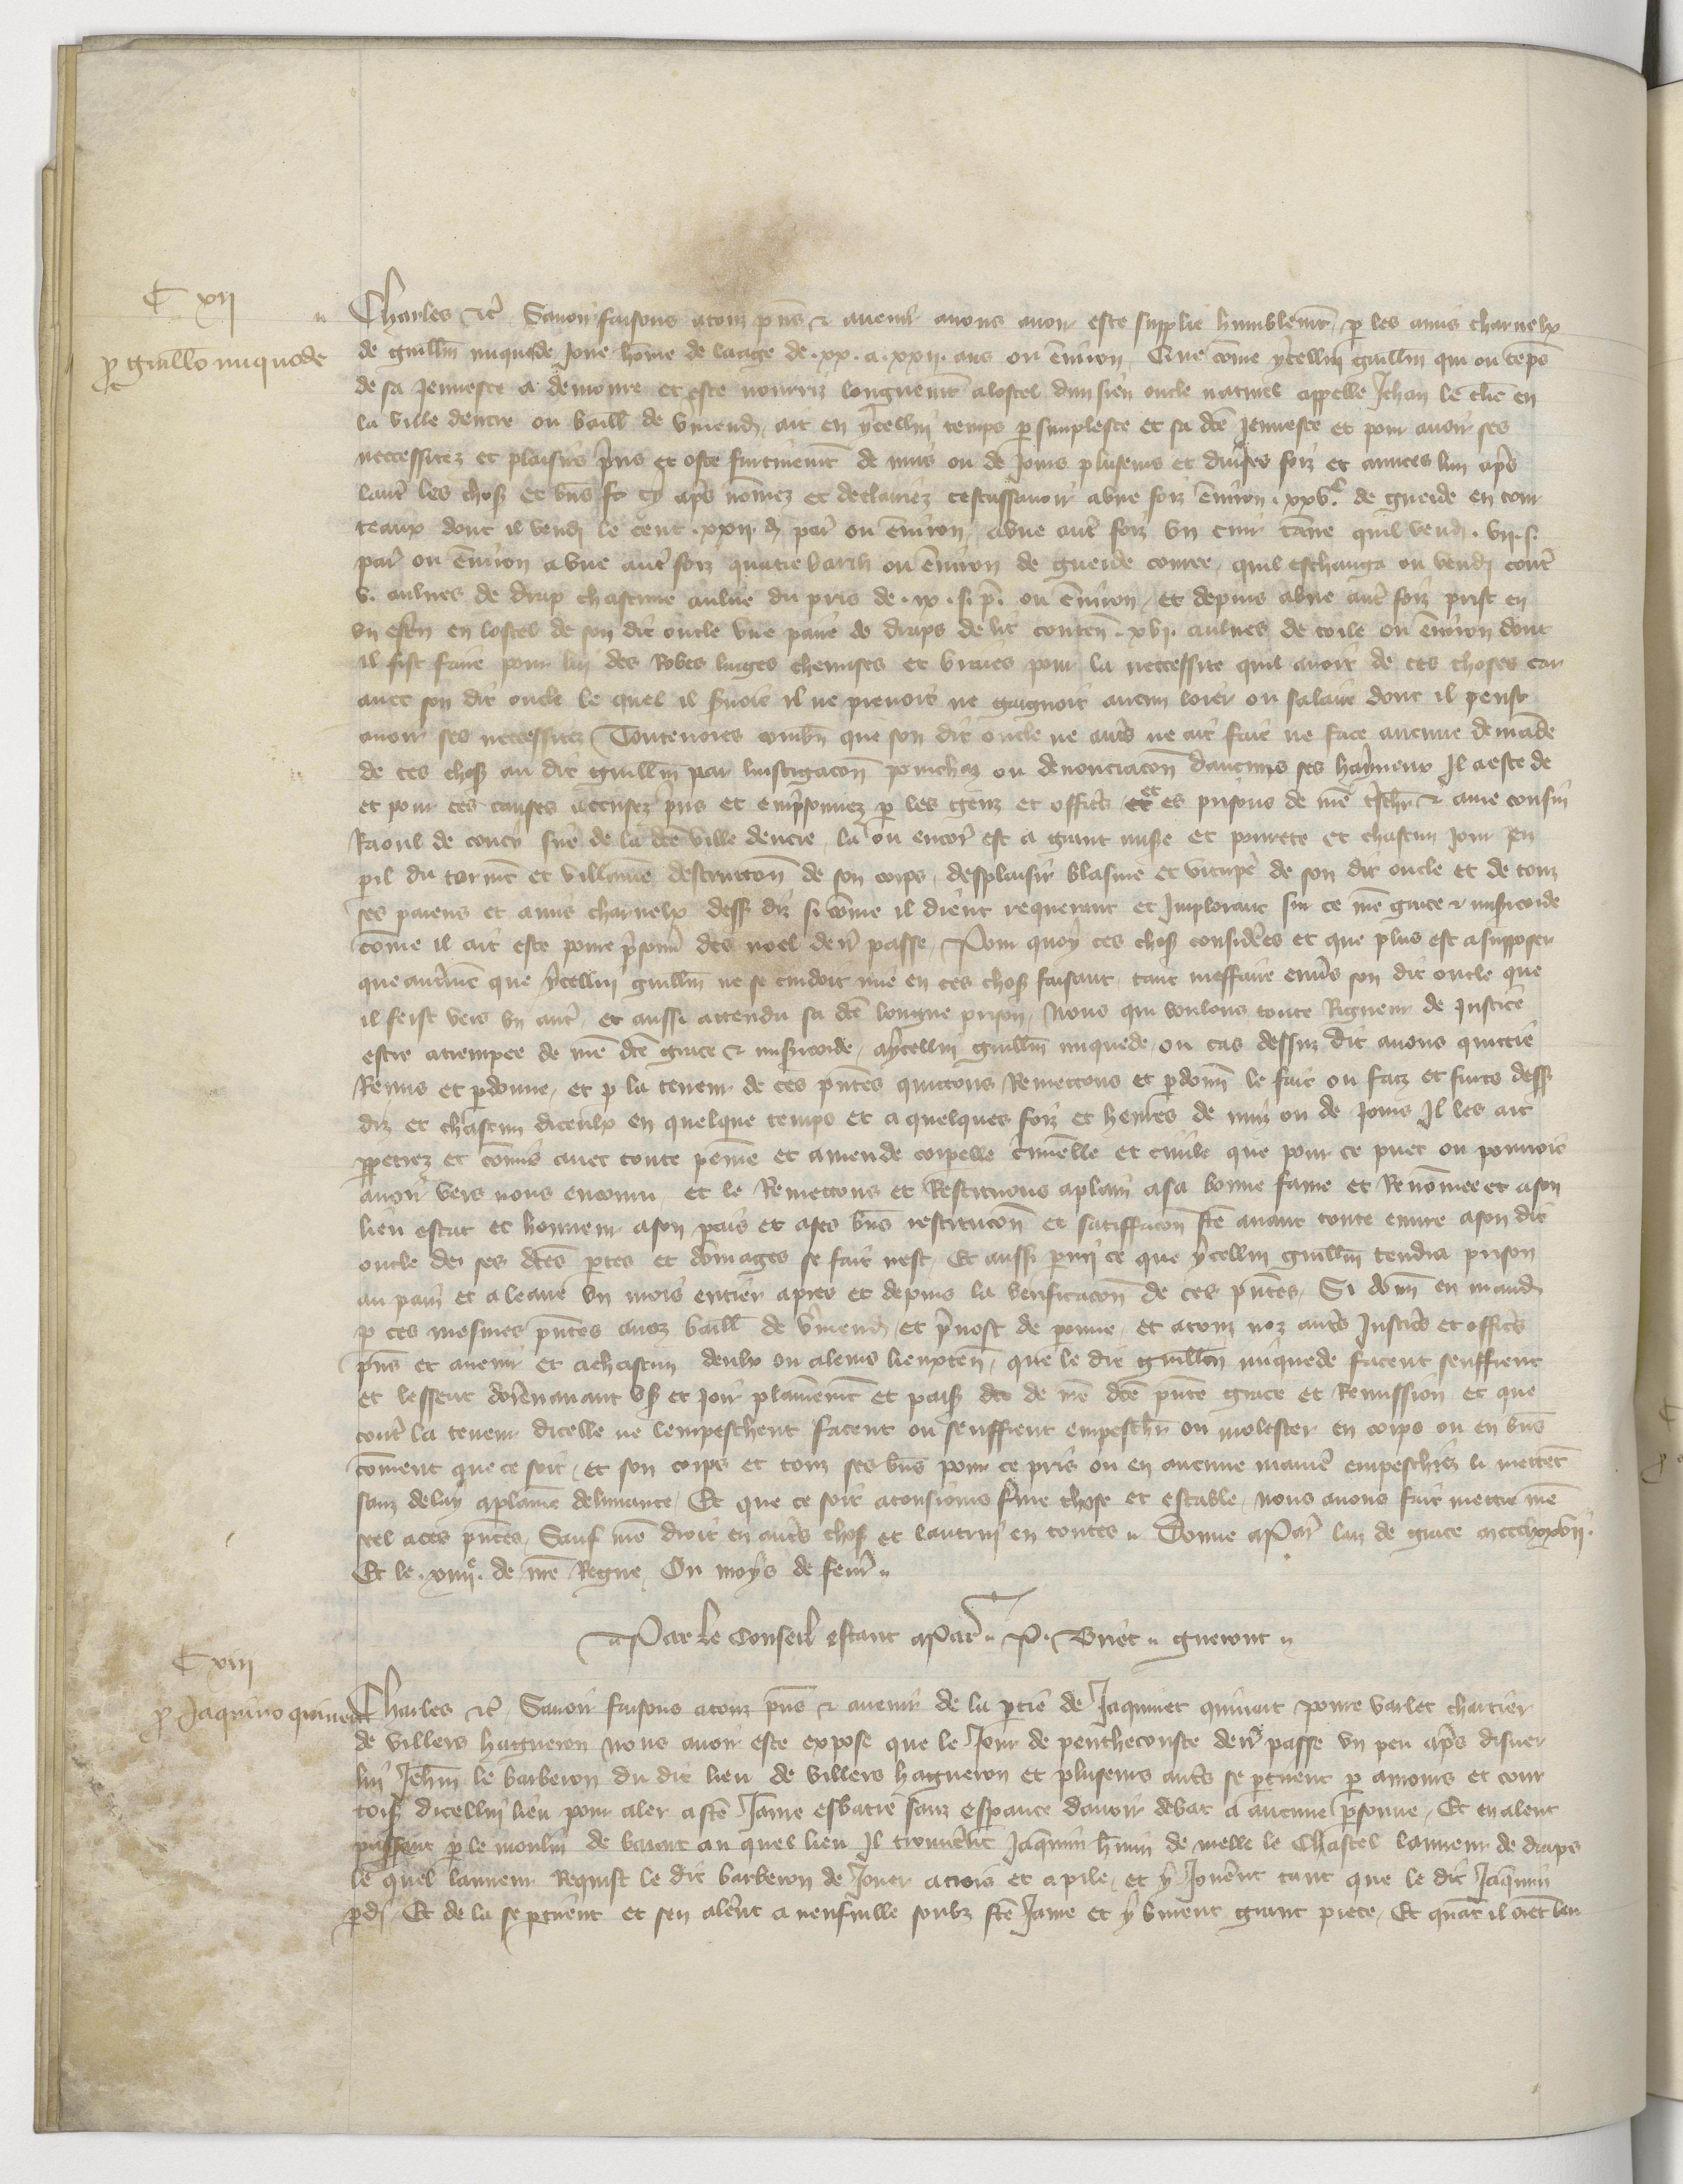 C xii
p guillo miquede
Charles etc Savoir faisons a touz pns & avenir a nous avoir este supplie humblemt p les amis charnelx
de guillm miquede Jone home de laage de .xx. a .xxii. ans ou environ Que come ycellui guillm qui ou temps
de sa Jenneste a demoure et este nourriz longuemt a lostel dun sien oncle naturel appelle Jehan le clic en
la ville dencre ou baill de Vmend ait en ycellui temps p simpleste et sa dce Jenneste et pour avoir ses
neccessitez et plaisirs pns et oste furtivemt de nuis ou de Jours plusieurs et divses foiz et annees lun aps
laute les chos et bns cy aps nomez et declairez cestassavoir a vne foiz environ .xxvc. de gueide en tour
teaux dont il vend le cent .xxii. d par ou environ a vne aut foiz vn cuir tane quil vend .vii. s.
par ou environ a vne aut foiz quatre barilz ou environ de gueide couree quil eschanga ou vend cont
v. aulnes de drap chascune aulne du pris de .ix. s. p. ou environ et depuis a vne aut foiz prist en
vn escrin en lostel de son dit oncle vne paire de draps de lit conten .xvi. aulnes de toile ou environ dont
il fist faire pour lui des Robes linges chemises et braies pour la neccessite quil avoit de ces choses car
avec son dit oncle le quel il svoit il ne prenoit ne gaignoit aucun loier ou salaire dont il peust
avoir ses neccessitez Toutevoies combn que son dit oncle ne auts ne ait fait ne face aucune demande
de ces chos au dit guillm par linstigacon pourchaz ou denonciacon daucuns ses hayneux Il a este de
et pour ces causes accusez pns et emprsonnez p les genz et officrs et es prisons de nre tschr & ame cousin
Raoul de coucy sire de la dce ville dencre la ou encor est a grant mise et povrete et chascun Jour en
pil du tormt et villaine destruccon de son corps desplaisir blasme et vitupe de son dit oncle et de touz
ses parens et amis charnelx dess diz si come il dient requerant et Implorant sur ce nre grace & misicorde
come il ait este povre prsonn des noel denr passe Pour quoy ces chos considerees et que plus est a supposer
que autrmt que ycellui guillm ne se cuidoit mie en ces chos faisant tant meffaire envs son dit oncle que
il feist vers vn aut et aussi attendu sa dce longue prison Nous qui voulons toute Rigueur de Justice
estre attrempee de nre dce grace & misicorde aycellui guillm miquede ou cas dessus dit avons quictie
Remis et pdonne et p la teneur de ces pntes quictons Remettons et pdonn le fait ou faiz et furs dess
diz et chascun diceulx en quelque temps et a quelques foiz et heures de nuiz ou de Jours Il les ait
ppetrez et comis avec toute peine et amende corpelle cimelle et civile que pour ce puet ou pourroit
avoir vers nous encouru et le Remettons et Restituons aplain a sa bonne fame et Renomee et a son
lieu estat et honneur a son pais et a ses bns restitucon et satisfacon fce avant toute euvre a son dit
oncle de ses dces ptes et domages se fait nest Et aussi pmi ce que ycellui guillm tendra prison
au pain et a leaue vn mois entier apres et depuis la verificacon de ces pntes Si donn en mand
p ces mesmes pntes auz baill de Vmend et pvost de pronne et a touz noz auts Justic et officrs
pns et avenir et a chascun deulx ou a leurs lieuxten que le dit guillm miquede facent seuffrent
et lessent dorenavant us et Joir plainemt et pais de nre dce pnte grace et Remission et que
cont la teneur dicelle ne lempeschent facent ou seuffrent empeschr ou molester en corps ou en bns
coment que ce soit et son corps et touz ses bns pour ce pris ou en aucune manie empeschez li mettet
sanz delay aplaine delivrance Et que ce soit a tousiours fme chose et estable Nous avons fait mettre nre
seel a ces pntes Sauf nre droit en auts chos et lautrui en toutes Donne a Par lan de grace mccclxxvii.
Et le .xiiiie. de nre Regne Ou moys de fevr
Par le Conseil estant a Par P. Briet guerout
C xiii
p Jaquino quinart
Charles etc Savoir faisons a touz pns & avenir de la ptie de Jaquinet quinart povre varlet chartier
de villers hagueron nous avoir este expose que le Jour de penthecouste denr passe vn peu aps disner
lui Jehm le barberon du dit lieu de villers hagueron et plusieurs auts se ptirent p amours et cour
tois dicellui lieu pour aler a ste Jame esbatre sanz espance davoir debat a aucune psonne Et en alent
passent p le moulin de bavart au quel lieu Il trouvrent Jaquin hmi de nelle le Chastel laneur de draps
le quel laneur Requist le dit barberon de Jouer a crois et a pile et y Jouerent tant que le dit Jaquin
pdi Et de la se ptirent et sen alerent a neufville soubz ste Jame et y burent grant piece Et quant il orent beu